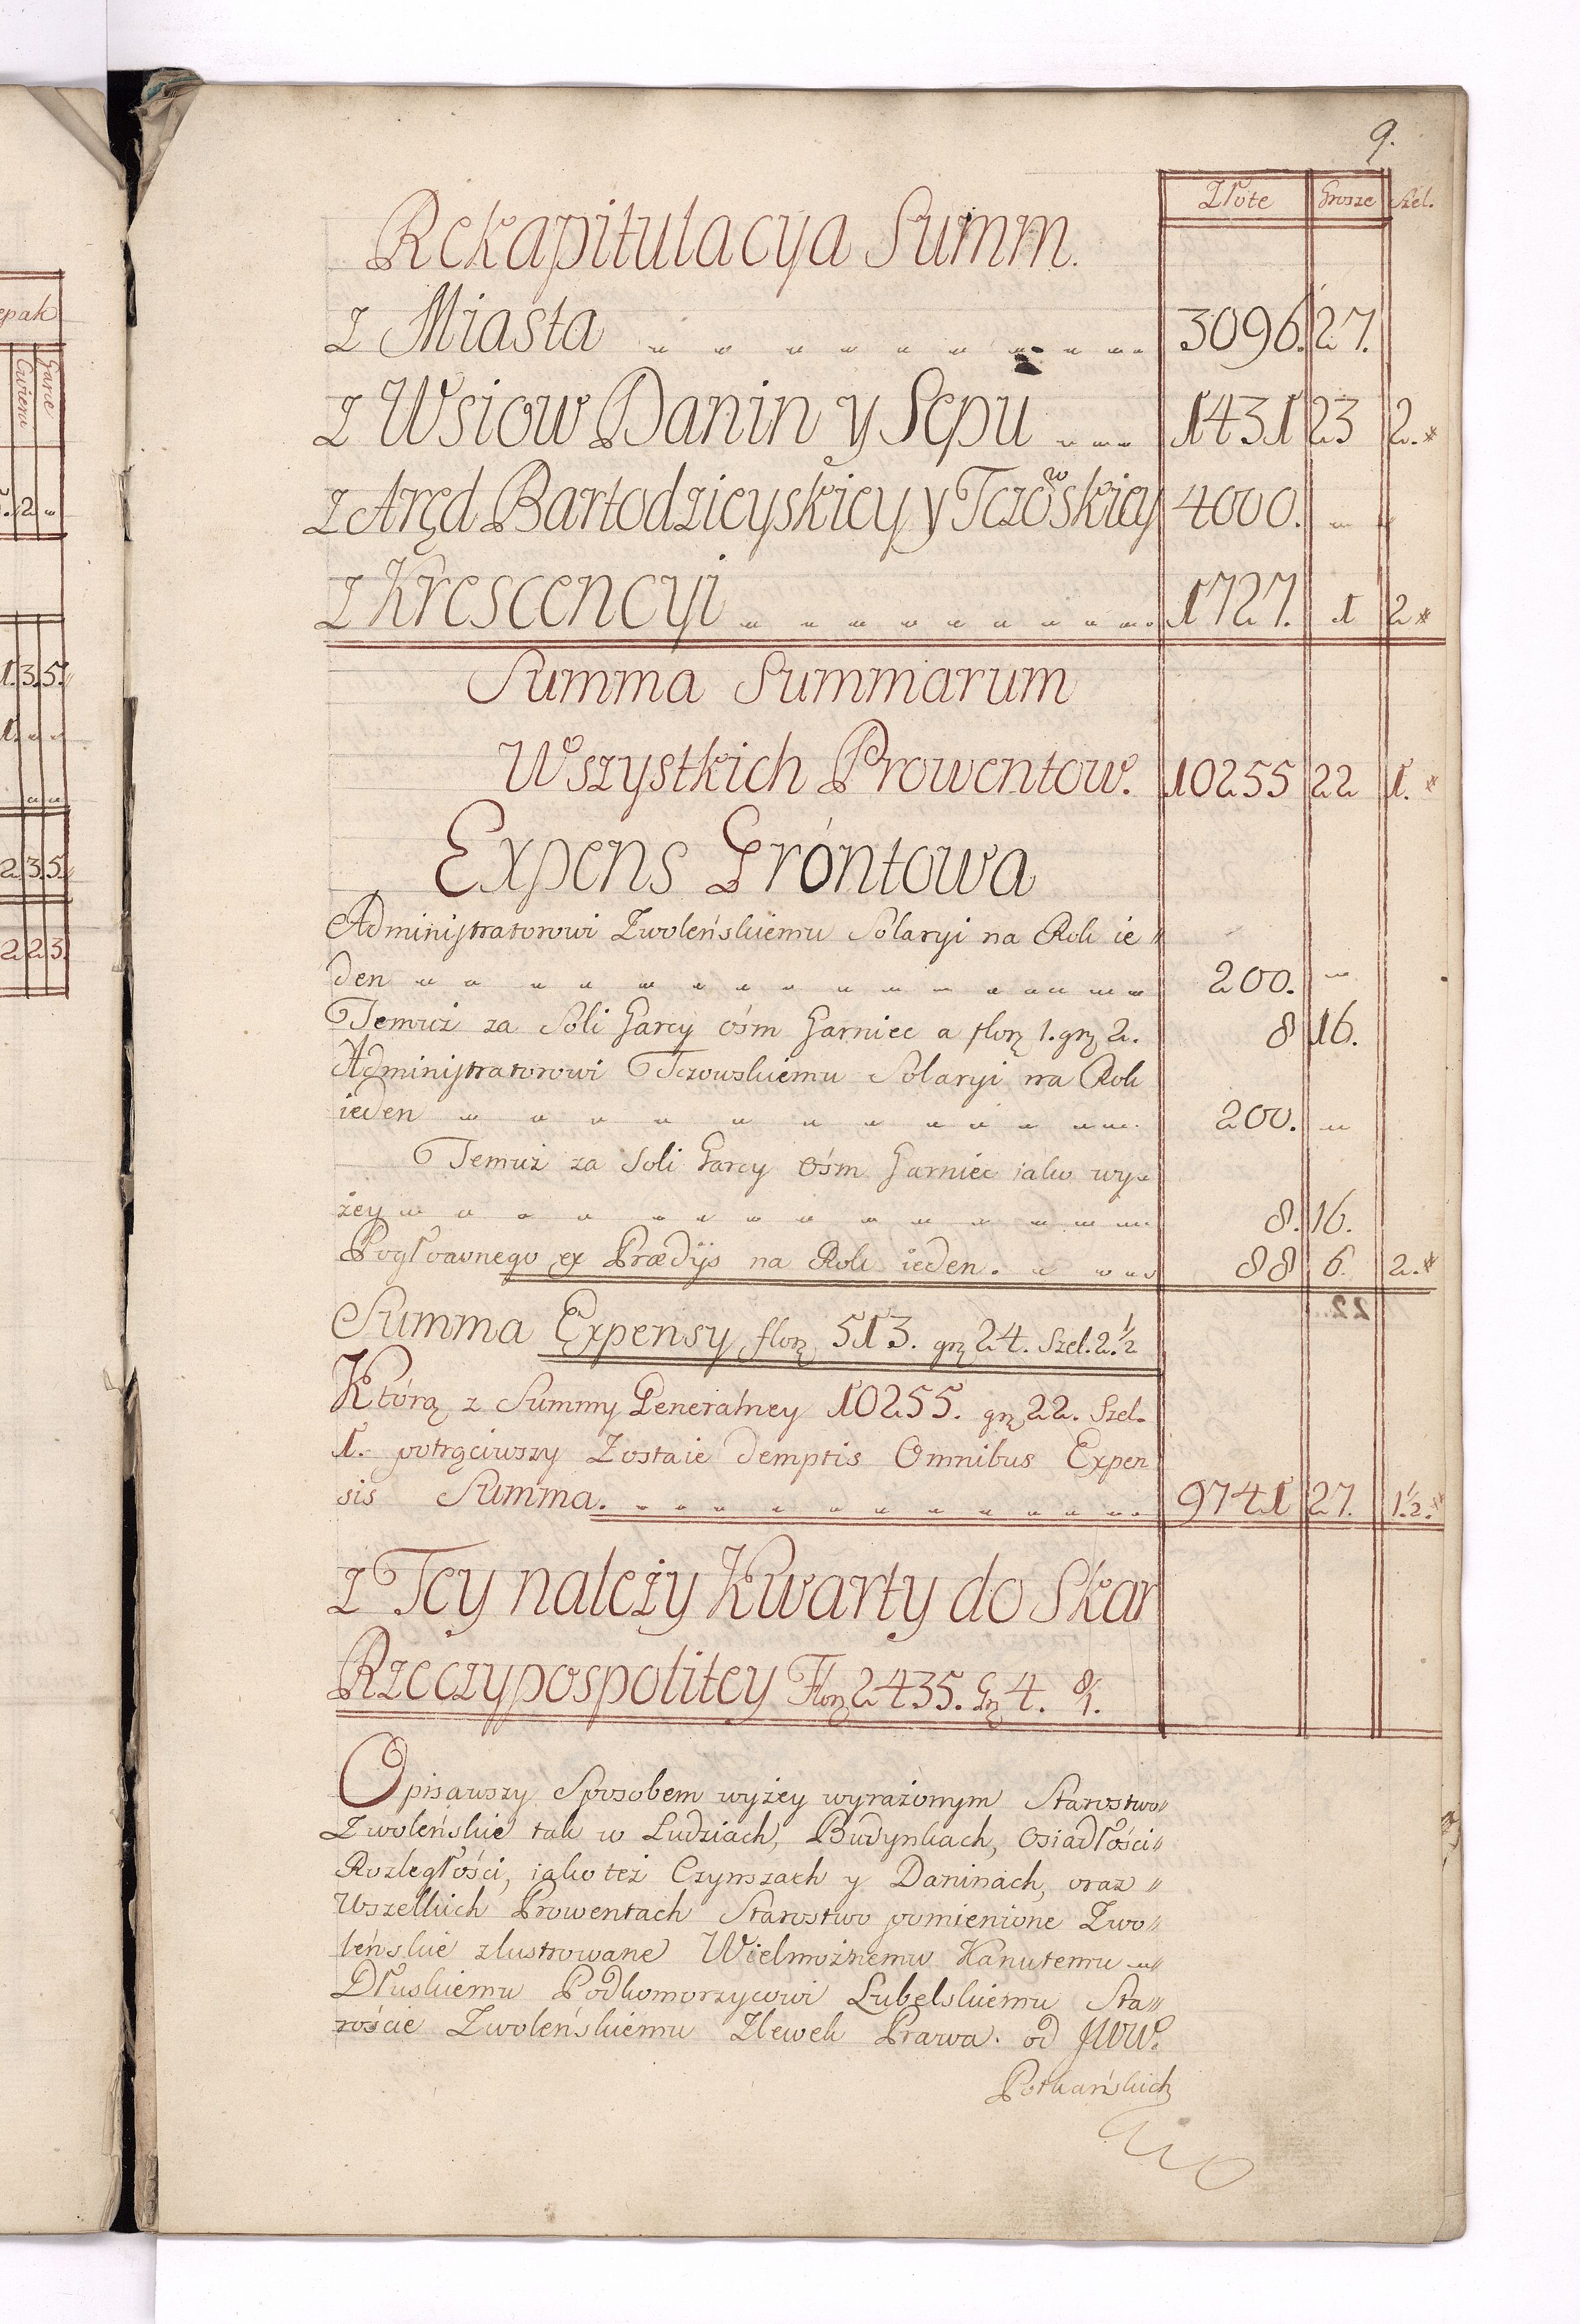 epak
Garce
Cwierci
5. 2 "
1. 3. 5.
1. " "
" "
2 3 5
2 2 3.
9.
Złote Grosze Szel.
Rekapitulacya Summ.
z Miasta 3096. 27.
z Wsiow Danin y Sepu 1431 23 2.*
z Aręd Bartodzieyskiey y Tczowskiey 4000. "
z Krescencyi 1727. 1 2*
Summa Summarum
Wszystkich Prowentow. 10255 22 1.*
Expens Gróntowa
Administratorowi Zwoleńskiemu Solaryi na Rok ie"
den 200. "
Temuż za Soli Garcy óśm Garniec a florz 1. grz 2. 8 16.
Administratorowi Tczowskiemu Solaryi na Rok
ieden 200. "
Temuż za Soli Garcy Ośm Garniec iako wy"
żey 8. 16.
Pogłownego ex Prædijs na Rok ieden. 88 6. 2.*
Summa Expensy florz 513. grz 24. Szel. 2.½
Którą z Summy Generalney 10255. grz 22. Szel.
1. potrąciwszy Zostaie demptis Omnibus Expen
sis Summa. 9741 27. 1.½.*
z Tey należy Kwarty do Skar
Rzeczypospolitey Florz 2435. Grz 4. 8/1.
Opisawszy Sposobem wyżey wyrażonym Starostwo"
Zwoleńskie tak w Ludziach, Budynkach, Osiadłości"
Rozległości, iako też Czynszach y Daninach, oraz "
Wszelkich Prowentach Starostwo pomienione Zwo"
leńskie zlustrowane Wielmożnemu Kanutemu "
Dłuskiemu Podkomorzycowi Lubelskiemu Sta"
roście Zwoleńskiemu Zlewek Prawa. od JWW.
Potkańskich